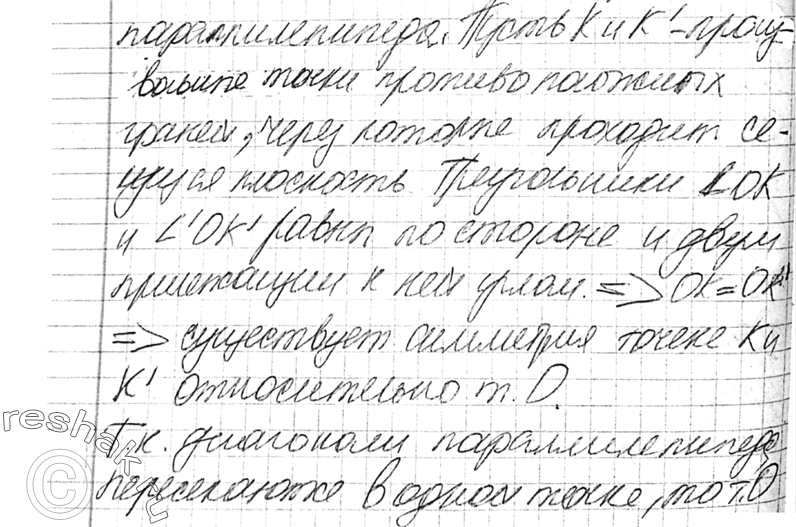 параллилепипеда. Пусть K и K' – произ-
вольные точки противоположных
граней, через которые проходит се-
кущая плоскость. Треугольники LOK
и L'OK' равны по стороне и двум
прилежащим к ней углам. => OK = OK'
=> существует симметрия точек K и
K' относительно т. O.
Т.к. диагонали параллилепипеда
пересекаются в одной точке, то т. O
reshak.ru
©